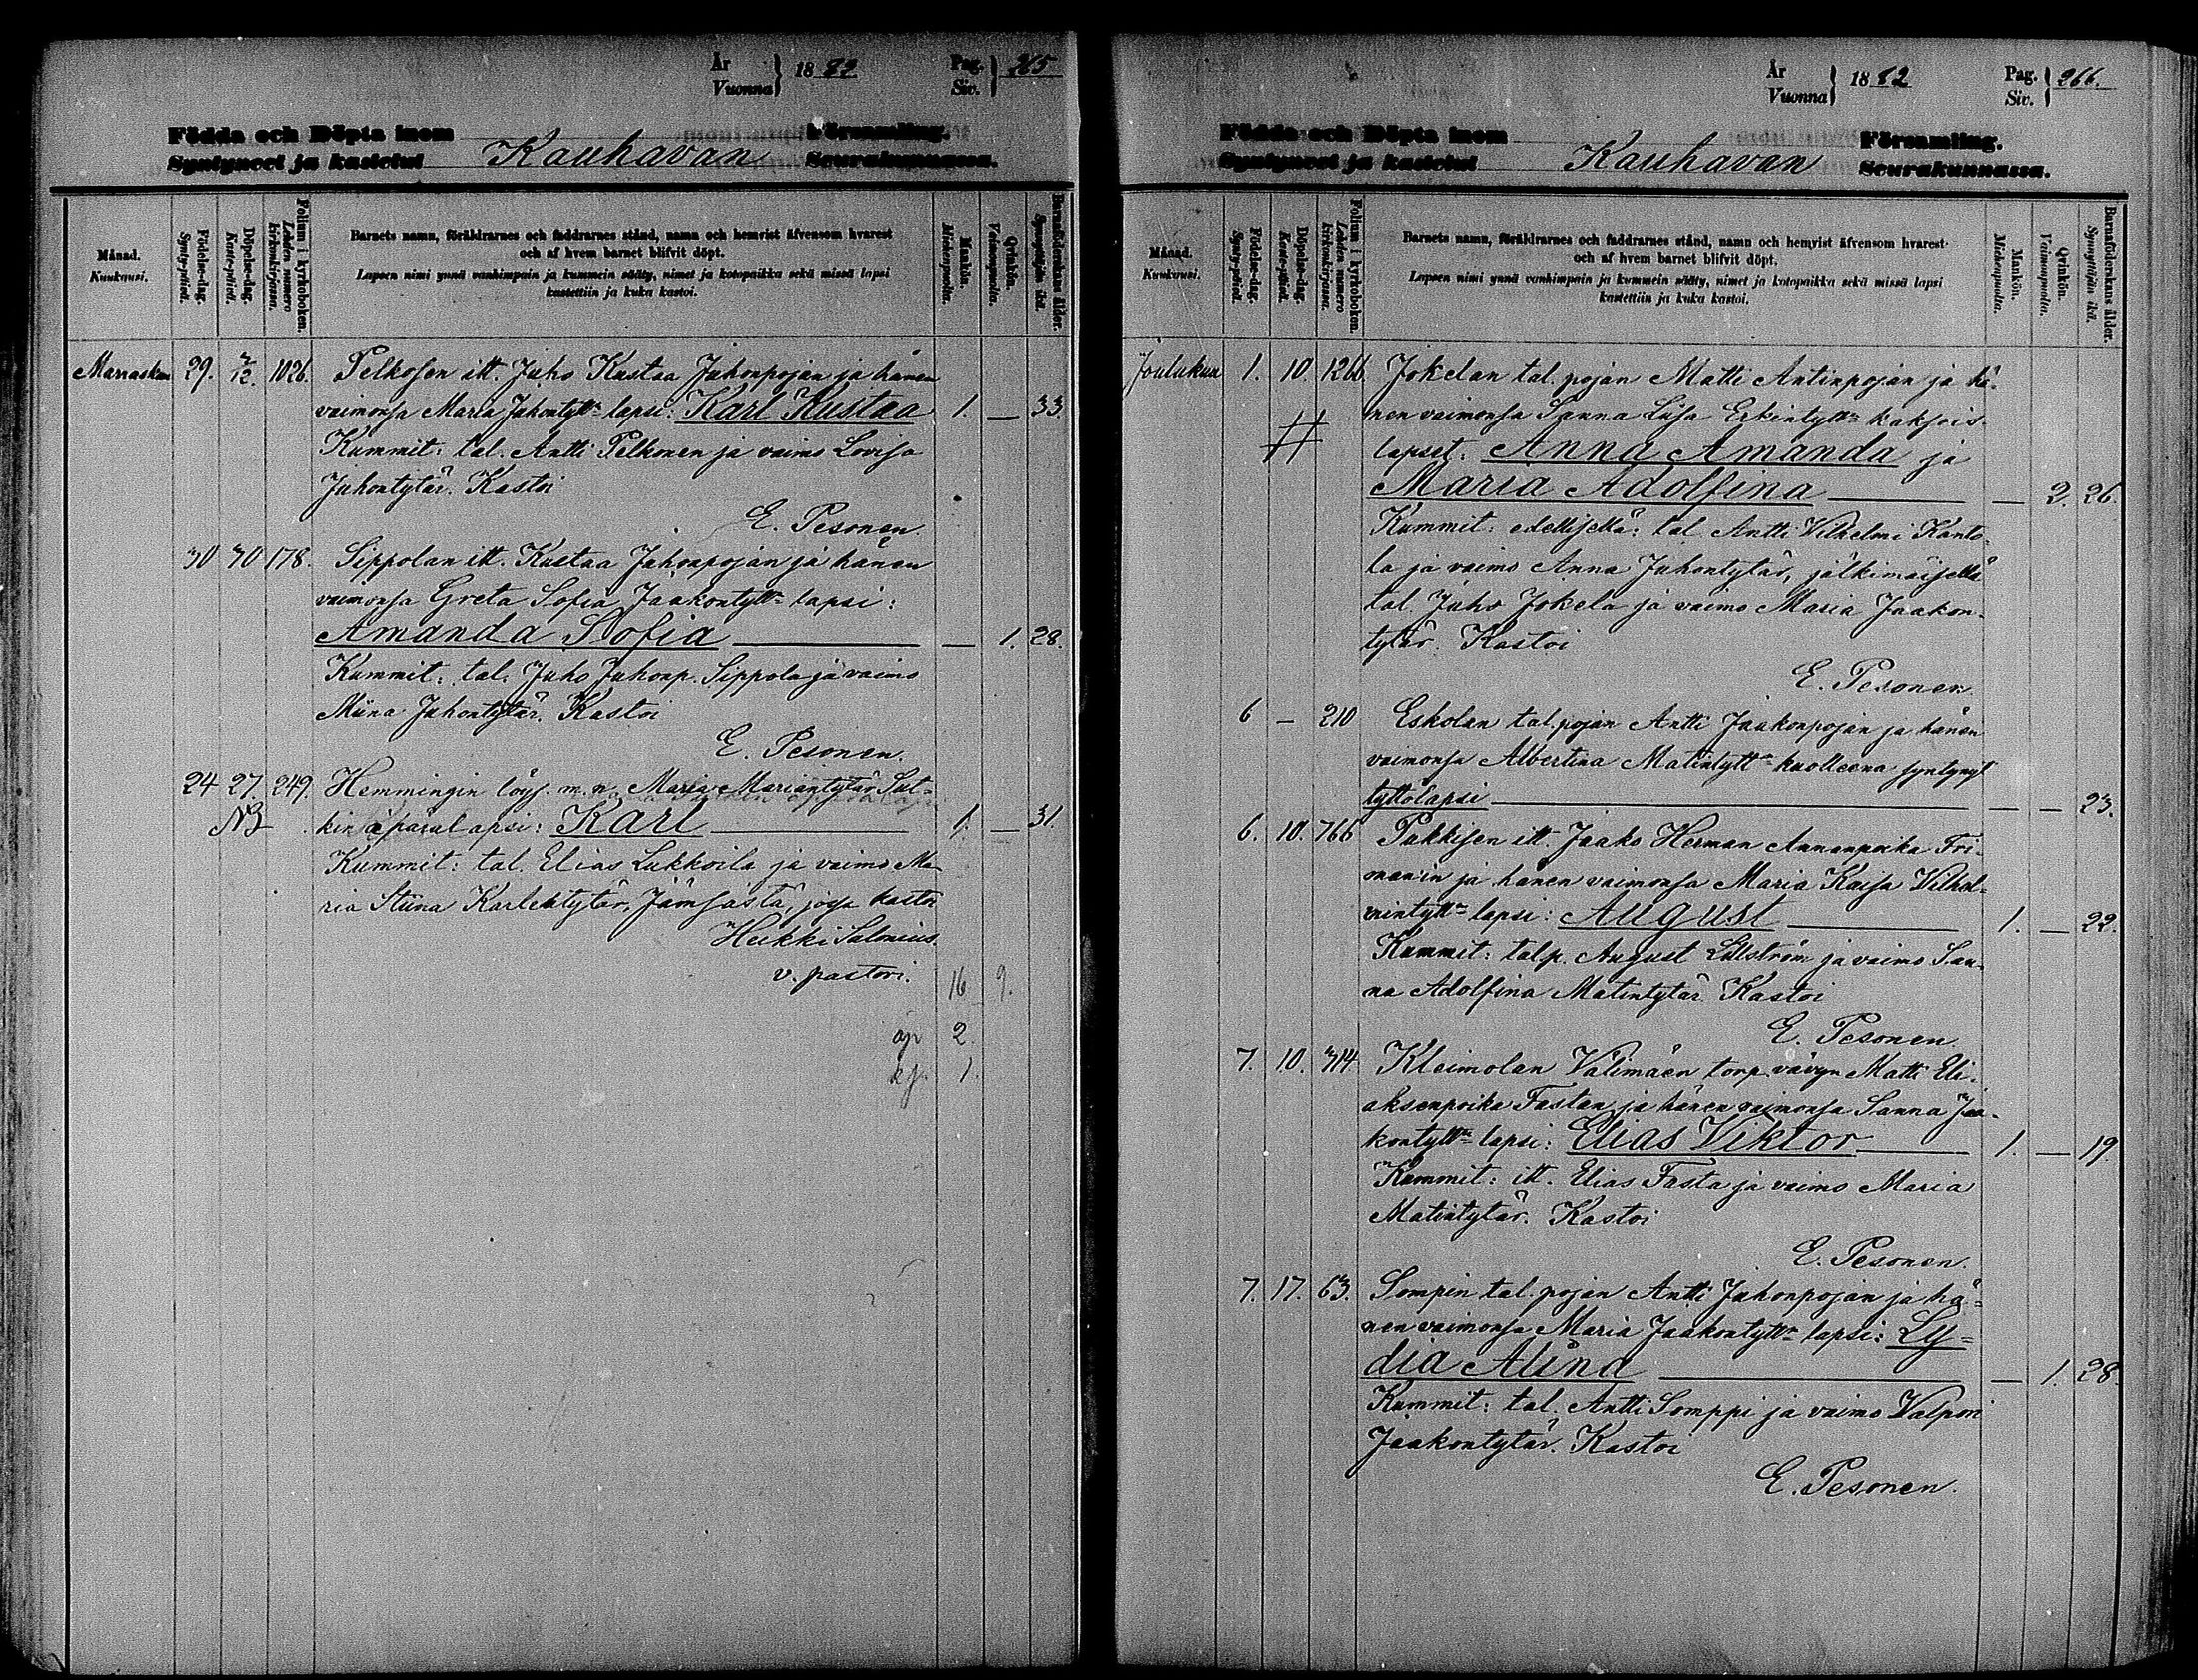 År
Vuonna } 1882 Pag.
Siv. } 265
Födda och Döpta inom Församling.
Syntyneet ja kastetut Kauhavan Seurakunnassa.
Månad.
Kuukausi.
Födelse-dag.
Synty-päivä.
Döpelse-dag.
Kaste-päivä.
Folium i kyrkoboken.
Lehden numero
kirkonkirjassa.
Barnets namn, föräldrarnes och faddrarnes stånd, namn och hemvist äfvensom hvarest
och af hvem barnet blifvit döpt.
Lapsen nimi ynnä vanhimpain ja kummein sääty, nimet ja kotopaikka sekä missä lapsi
kastettiin ja kuka kastoi.
Mankön.
Miehenpuolta.
Qvinkön.
Vaimonpuolta.
Barnaföderskans ålder.
Synnyttäjän ikä.
Marraskuu 29. 7/12. 1026. Pelkosen itt. Juho Kustaa Juhonpojan ja hänen
vaimonsa Maria Juhontytt:n lapsi: Karl Kustaa 1. — 33
Kummit: tal. Antti Pelkonen ja vaimo Lovisa
Juhontytär. Kastoi
E. Pesonen.
30 30 178. Sippolan itt. Kustaa Juhonpojan ja hänen
vaimonsa Greta Sofia Jaakontytt:n lapsi:
Amanda Sofia — — 1. 28.
Kummit: tal. Juho Juhonp. Sippola ja vaimo
Miina Juhontytär. Kastoi
E. Pesonen.
24 27. 249. Hemmingin löys. m. n. Maria Mariantytär Sut-
NB kin äpärälapsi: Karl — 1. — 31.
Kummit: tal. Elias Lukkoila ja vaimo Ma-
ria Stiina Karlentytär, Jämsästä, jossa kastoi
Heikki Salonius.
v. pastori.
16 9.
äp 2.
kj. 1.
År
Vuonna } 1882 Pag.
Siv. } 266.
Födda och Döpta inom Församling.
Syntyneet ja kastetut Kauhavan Seurakunnassa.
Månad.
Kuukausi.
Födelse-dag.
Synty-päivä.
Döpelse-dag.
Kaste-päivä.
Folium i kyrkoboken.
Lehden numero
kirkonkirjassa.
Barnets namn, föräldrarnes och faddrarnes stånd, namn och hemvist äfvensom hvarest
och af hvem barnet blifvit döpt.
Lapsen nimi ynnä vanhimpain ja kummein sääty, nimet ja kotopaikka sekä missä lapsi
kastettiin ja kuka kastoi.
Mankön.
Miehenpuolta.
Qvinkön.
Vaimonpuolta.
Barnaföderskans ålder.
Synnyttäjän ikä.
Joulukuu 1. 10. 1266. Jokelan tal. pojan Matti Antinpojan ja hä-
nen vaimonsa Sanna Liisa Erkintytt:n kaksois-
lapset: Anna Amanda ja
Maria Adolfina — — 2. 26.
Kummit: edellisellä: tal. Antti Vilhelmi Kanto-
la ja vaimo Anna Juhontytär, jälkimäisellä
tal. Juho Jokela ja vaimo Maria Jaakon-
tytär. Kastoi
E. Pesonen.
6 — 210 Eskolan tal. pojan Antti Jaakonpojan ja hänen
vaimonsa Albertina Matintytt:n kuolleena syntynyt
tyttölapsi — — — 23.
6. 10. 766 Pukkisen itt. Jaako Herman Annanpoika Fri-
manin ja hänen vaimonsa Maria Kaisa Vilhel-
mintytt:n lapsi: August — 1. — 22.
Kummit: talp. August Lillström ja vaimo San-
na Adolfina Matintytär. Kastoi
E. Pesonen.
7. 10. 314. Kleimolan Välimäen torp. vävyn Matti Eli-
aksenpoika Fastan ja hänen vaimonsa Sanna Jaa-
kontytt:n lapsi: Elias Viktor — 1. — 19
Kummit: itt. Elias Fasta ja vaimo Maria
Matintytär. Kastoi
E. Pesonen.
7. 17. 63. Sompin tal. pojan Antti Juhonpojan ja hä-
nen vaimonsa Maria Jaakontytt:n lapsi: Ly-
dia Alina — — 1. 28.
Kummit: tal. Antti Somppi ja vaimo Valpuri
Jaakontytär. Kastoi
E. Pesonen.